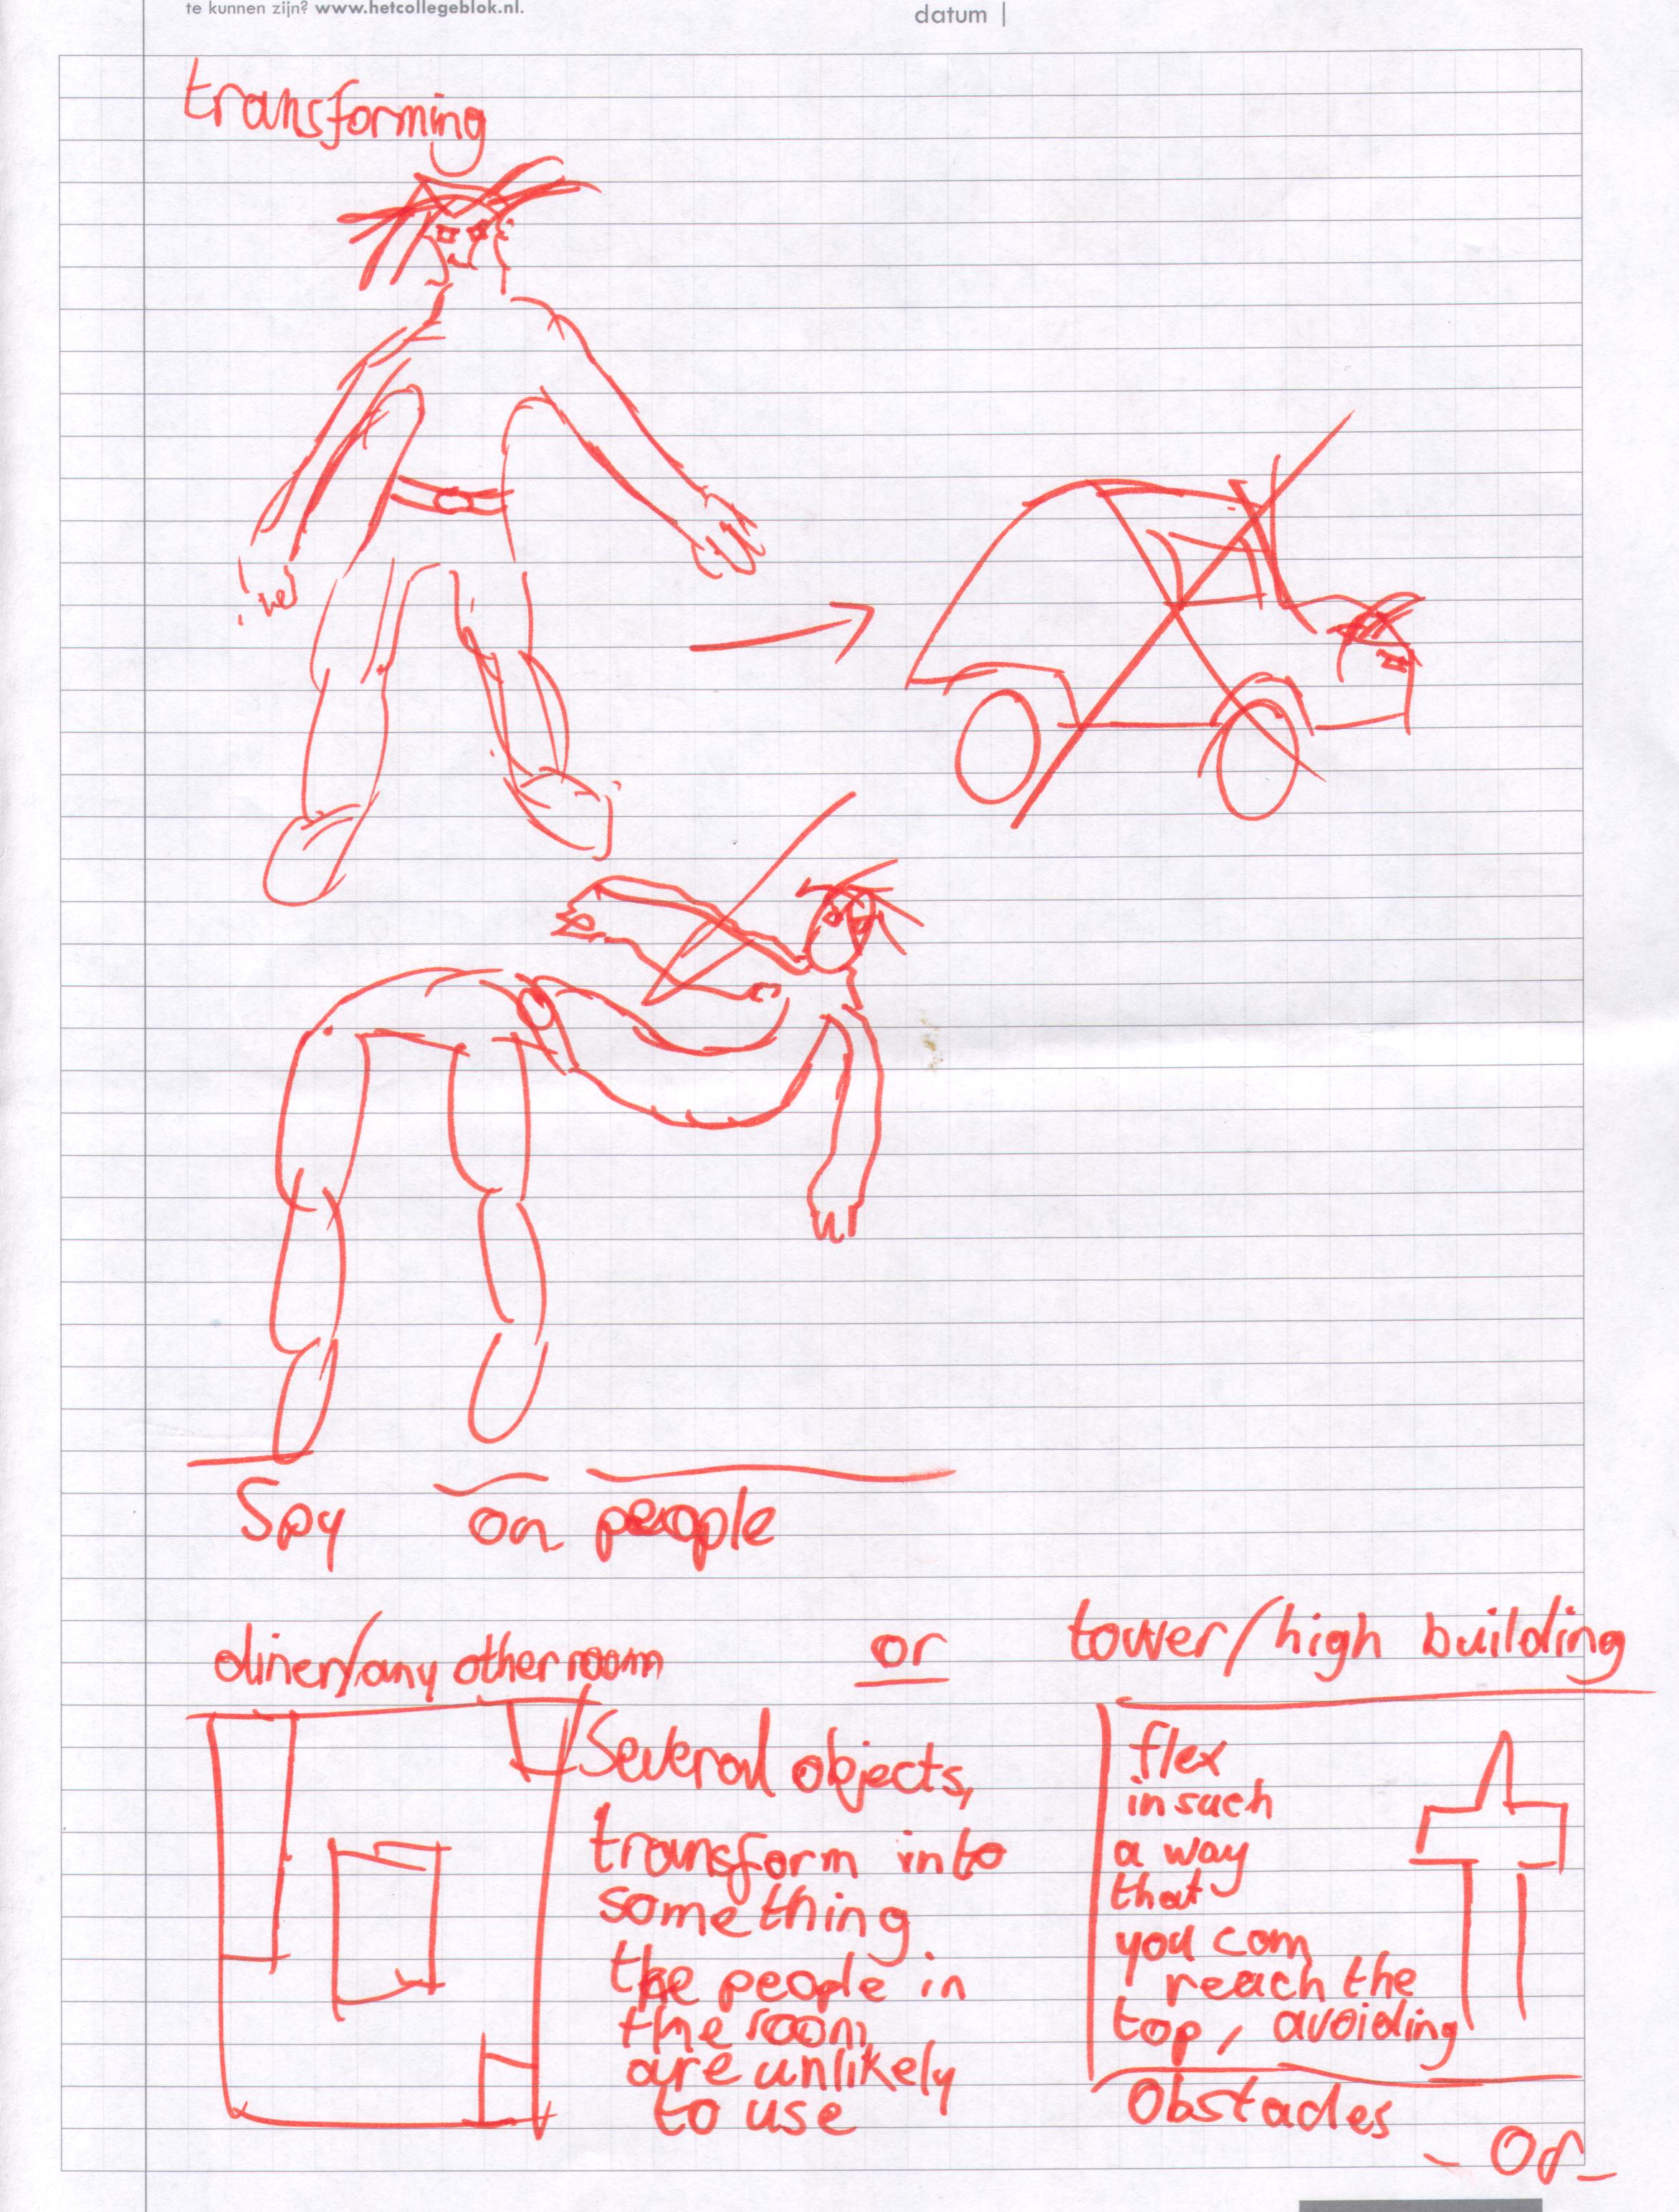 te kunnen zijn? www.hetcollegeblok.nl.
datum |
transforming
Spy on people
diner/any other room
or
tower/high building
Several objects,
transform into
something
the people in
the room
are unlikely
to use
flex
in such
a way
that
you can
reach the
top, avoiding
Obstacles
- Or -